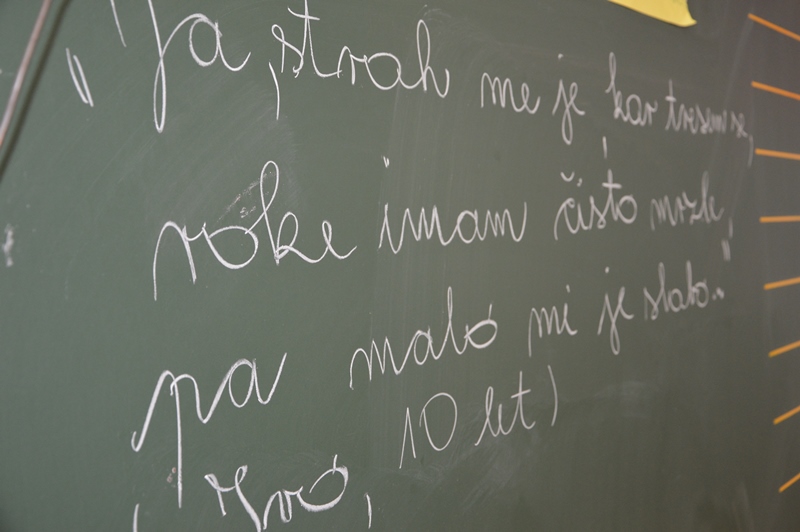 "Ja, strah me je kar tresem se,
roke imam čisto mrzle,
pa malo mi je slabo."
(Ivo, 10 let)